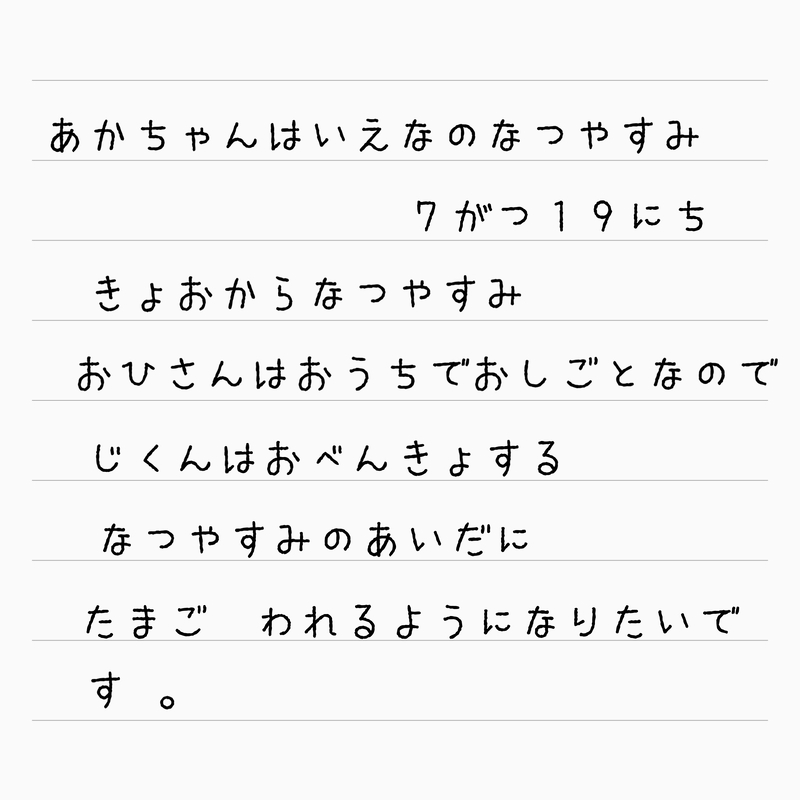 あかちゃんはいえなのなつやすみ
７がつ１９にち
きょおからなつやすみ
おひさんはおうちでおしごとなので
じくんはおべんきょする
なつやすみのあいだに
たまご　われるようになりたいで
す。